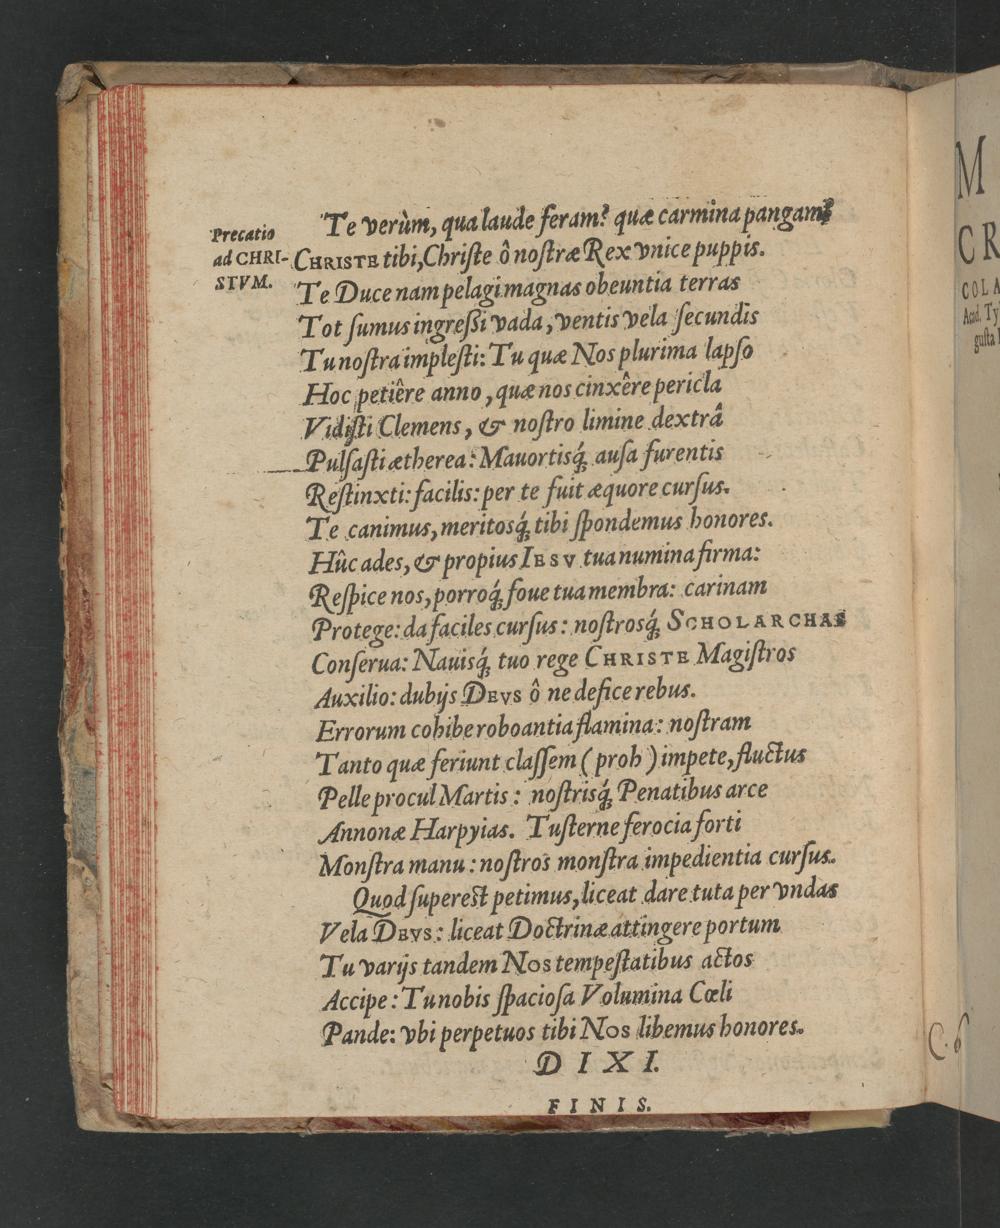 Te verùm, qua laude feram? quæ carmina pangam?
Precatio
ad CHRI-
STVM.
CHRISTE tibi, Chriſte ô noſtræ Rex vnice puppis.
Te Duce nam pelagi magnas obeuntia terras
Tot ſumus ingreſſi vada, ventis vela ſecundis
Tu noſtra impleſti: Tu quæ Nos plurima lapſo
Hoc petiêre anno, quæ nos cinxêre pericla
Vidiſti Clemens, & noſtro limine dextrâ
Pulſaſti ætherea: Mauortisq́; auſa furentis
Reſtinxti: facilis: per te fuit æquore curſus.
Te canimus, meritosq́; tibi ſpondemus honores.
Hûc ades, & propius IESV tua numina firma:
Reſpice nos, porroq́; foue tua membra: carinam
Protege: da faciles curſus: noſtrosq́; SCHOLARCHAS
Conſerua: Nauisq́; tuo rege CHRISTE Magiſtros
Auxilio: dubijs DEVS ô ne defice rebus.
Errorum cohibe roboantia flamina: noſtram
Tanto quæ feriunt claſſem (proh) impete, fluctus
Pelle procul Martis: noſtrisq́; Penatibus arce
Annonæ Harpyias. Tu ſterne ferocia forti
Monſtra manu: noſtros monſtra impedientia curſus.
Quod ſupereſt petimus, liceat dare tuta per vndas
Vela DEVS: liceat Doctrinæ attingere portum
Tu varijs tandem Nos tempeſtatibus actos
Accipe: Tu nobis ſpacioſa Volumina Cœli
Pande: vbi perpetuos tibi Nos libemus honores.
DIXI.
FINIS.
M
CR
COLA
Acad. Ty
guſta
C. 6